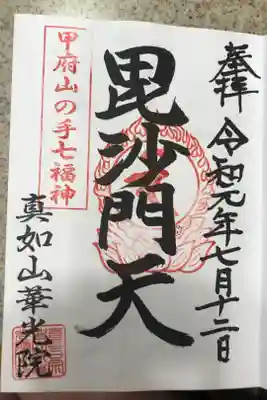 奉拝
令和元年七月十二日
毘沙門天
甲府山の手七福神
真如山華光院